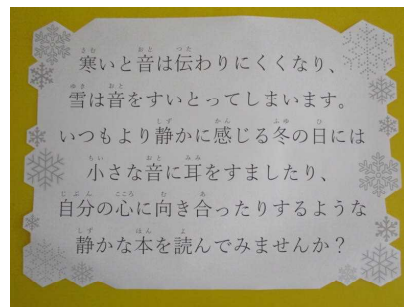 寒いと音は伝わりにくくなり、
雪は音をすいとってしまいます。
いつもより静かに感じる冬の日には
小さな音に耳をすましたり、
自分の心に向き合ったりするような
静かな本を読んでみませんか？